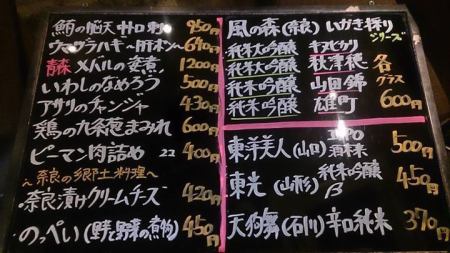 鮪の脳天中口刺 950円
ウマヅラハギ〜肝ポン〜 640円
青森 メバルの煮煮 1200円
いわしのなめろう 500円
アサリのチャンジャ 430円
鶏の九条葱まみれ 600円
ピーマン肉詰め 2コ 400円
〜奈良の郷土料理〜
奈良漬けクリームチーズ 420円
のっぺい(野と野菜の煮物) 450円
風の森(奈良) いかき採り シリーズ
純米大吟醸 キヌヒカリ
純米大吟醸 秋津穂
純米吟醸 山田錦
純米吟醸 雄町
各 グラス 600円
東洋美人(山口) 純米 500円
東光(山形) 純米吟醸 450円
天狗舞(石川)辛口純米 370円